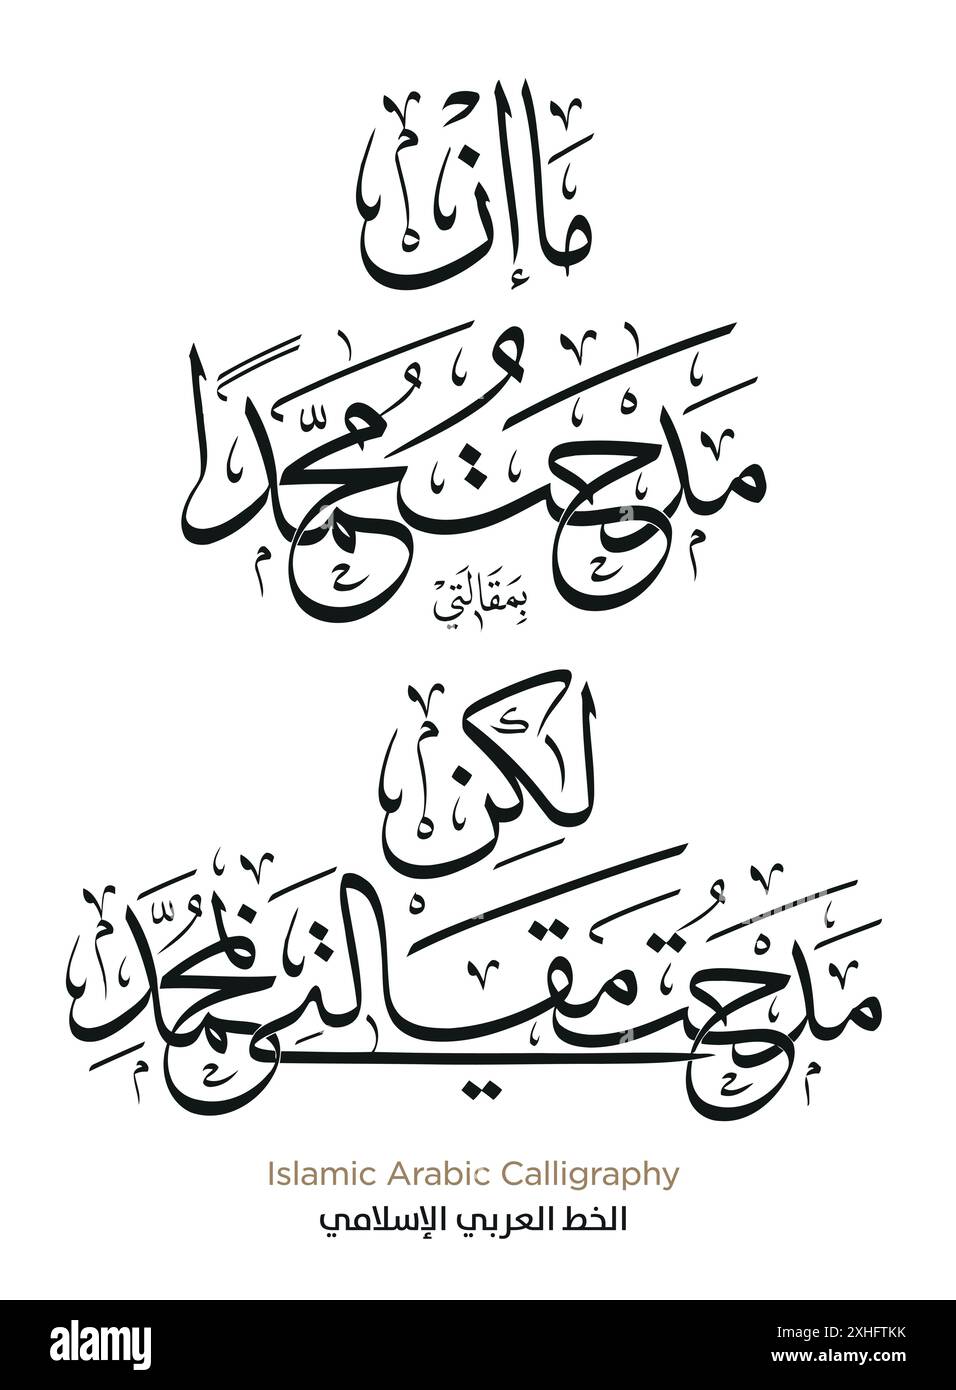 مَا إِنْ
مَدَحْتُ مُحَمَّدًا
بِمَقَالَتِيْ
لَكِنْ
مَدَحْتُ مَقَالَتِي بِمُحَمَّدِ
Islamic Arabic Calligraphy
الخط العربي الإسلامي
alamy
Image ID: 2XHFTKK
www.alamy.com